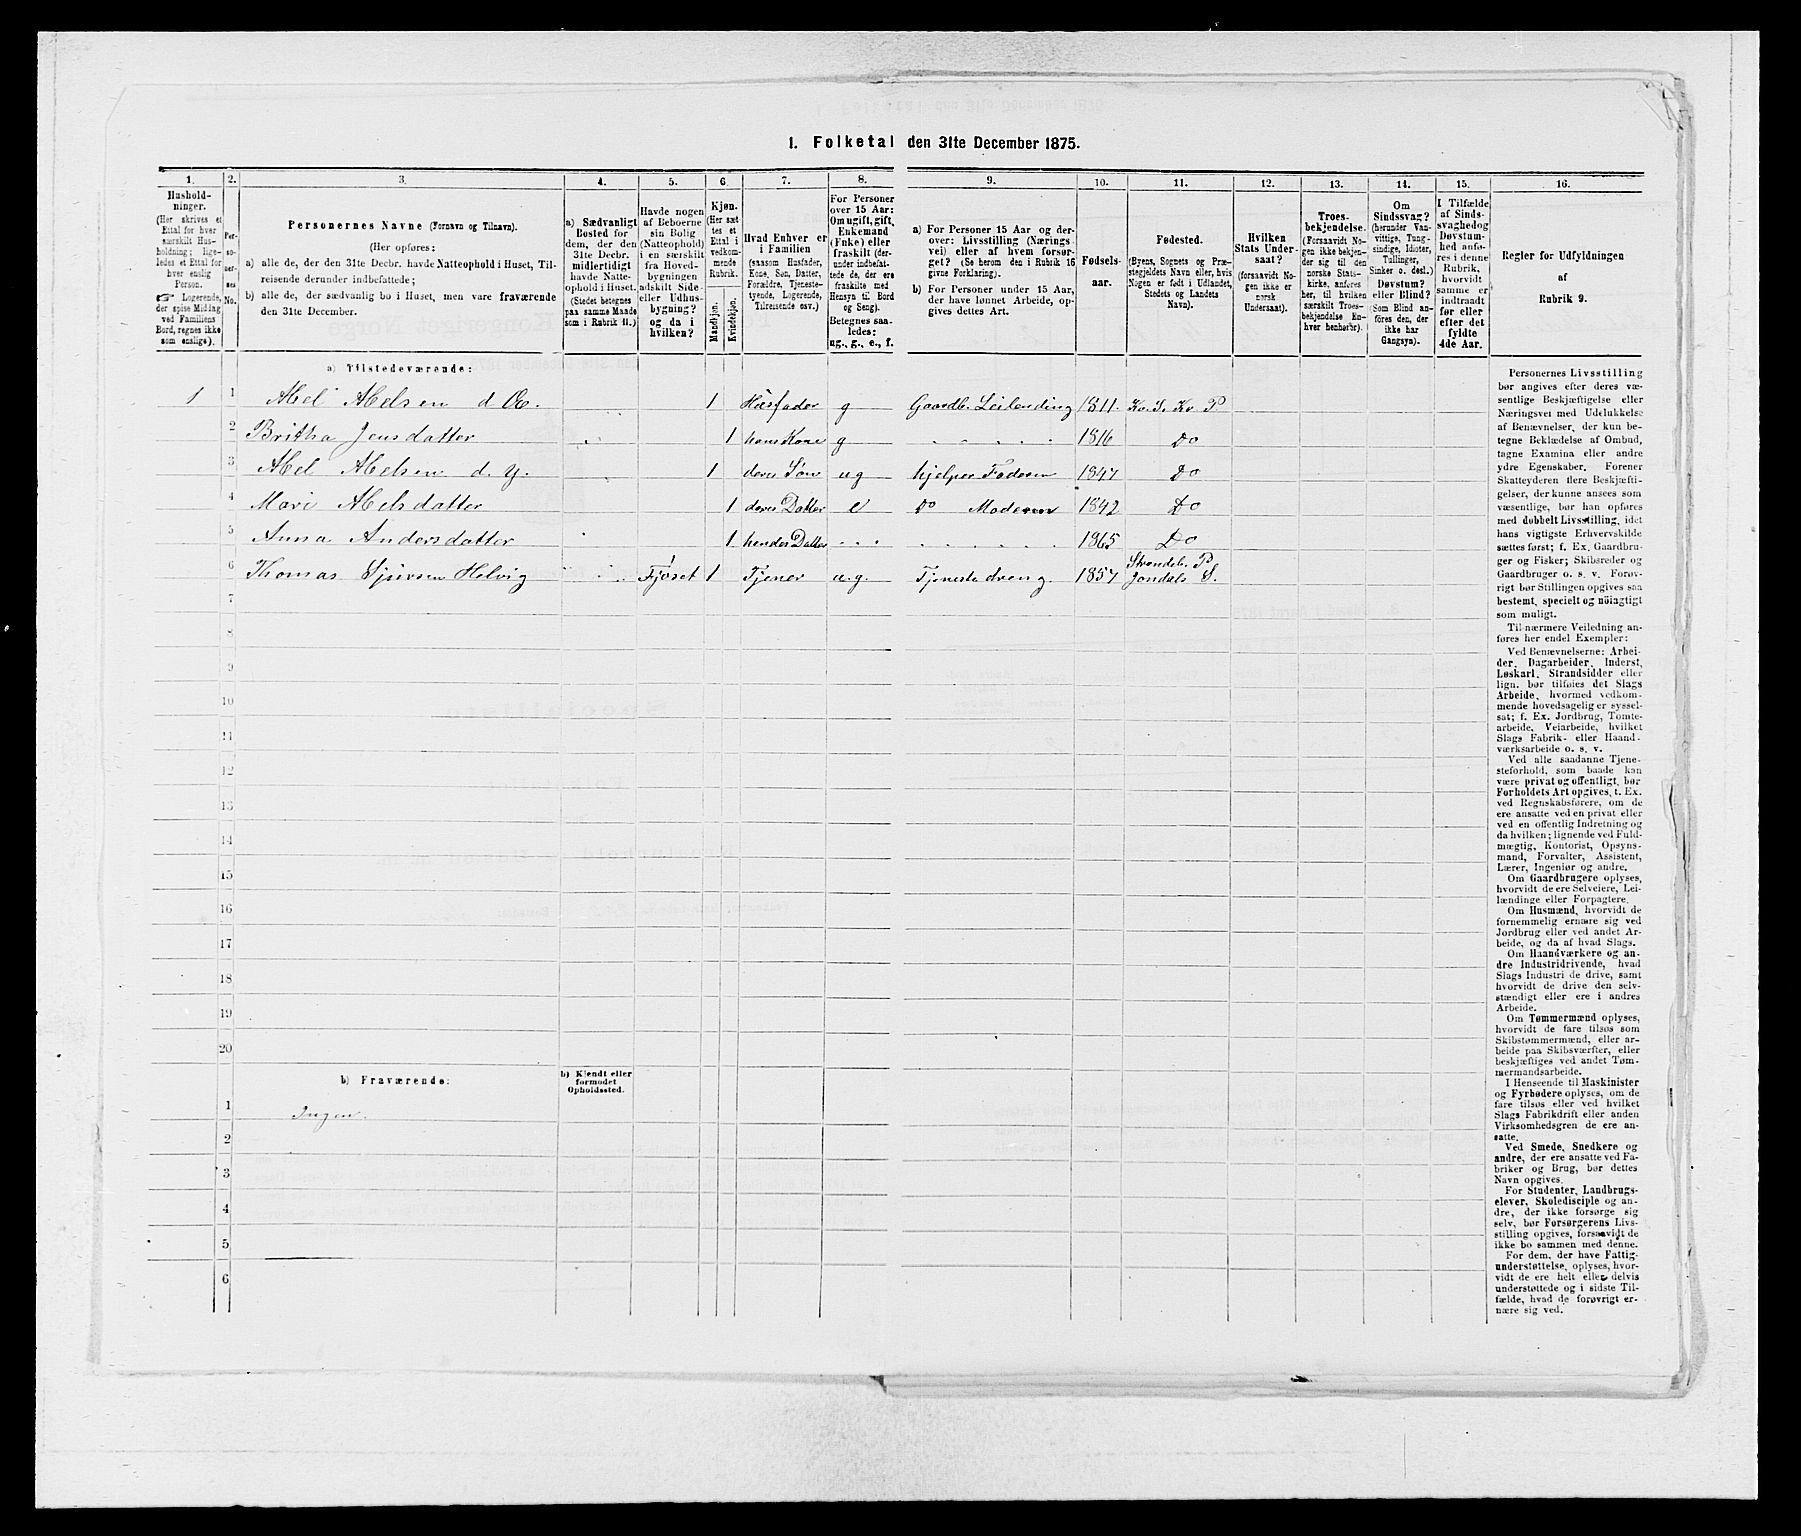 1. Folketal den 31te December 1875.
1. 2. 3. 4. 5. 6. 7. 8. 9. 10. 11. 12. 13. 14. 15. 16.
Hushold-
ninger.
(Her skrives et
Ettal for hver
særskilt Hus-
holdning; lige-
ledes et Ettal for
hver enslig
Person.
☞ Logerende,
der spise Middag
ved Familiens
Bord, regnes ikke
som enslige).
Per-
so-
ner-
nes
No.
Personernes Navne (Fornavn og Tilnavn).
(Her opføres:
a) alle de, der den 31te Decbr. havde Natteophold i Huset, Til-
reisende derunder indbefattede;
b) alle de, der sædvanlig bo i Huset, men vare fraværende
den 31te December.
a) Sædvanligt
Bosted for
dem, der den
31te Decbr.
midlertidigt
havde Natte-
ophold i Huset.
(Stedet betegnes
paa samme Maade
som i Rubrik 11.)
Havde nogen
af Beboerne
sin Bolig
(Natteophold)
i en særskilt
fra Hoved-
bygningen
adskilt Side-
eller Udhus-
bygning?
og da i
hvilken?
Kjøn.
(Her sæt-
tes et
Ettal i
vedkom-
mende
Rubrik.
Mandkjøn.
Kvindekjøn.
Hvad Enhver er
i Familien
(saasom Husfader,
Kone, Søn, Datter,
Forældre, Tjeneste-
tyende, Logerende,
Tilreisende osv.)
For Personer
over 15 Aar:
Om ugift, gift,
Enkemand
(Enke) eller
fraskilt (der-
under indbefat-
tede de, der ere
fraskilte med
Hensyn til Bord
og Seng).
Betegnes saa-
ledes:
ug., g., e., f.
a) For Personer 15 Aar og der-
over: Livsstilling (Nærings-
vei) eller af hvem forsør-
get? (Se herom den i Rubrik 16
givne Forklaring).
b) For Personer under 15 Aar,
der have lønnet Arbeide, op-
gives dettes Art.
Fødsels-
aar.
Fødested.
(Byens, Sognets og Præ-
stegjeldets Navn eller, hvis
Nogen er født i Udlandet,
Stedets og Landets
Navn).
Hvilken
Stats Under-
saat?
(forsaavidt No-
gen ikke er
norsk
Undersaat).
Troes-
bekjendelse.
(Forsaavidt No-
gen ikke bekjen-
der sig til den
norske Stats-
kirke, anføres
her, til hvilken
særskilt Troes-
bekjendelse En-
hver henhører).
Om
Sindssvag?
(herunder Van-
vittige, Tung-
sindige, Idioter,
Tullinger,
Sinker o. desl.)
Døvstum?
eller Blind?
(Som Blind an-
føres den, der
ikke har
Gangsyn).
I Tilfælde
af Sinds-
svaghed og
Døvstum-
hed anfø-
res i denne
Rubrik,
hvorvidt
samme er
indtraadt
før eller
efter det
fyldte
4de Aar.
Regler for Udfyldningen
af
Rubrik 9.
a) Tilstedeværende:
1 1 Abel Abelsen d. Æ. 1 Husfader g Gaardb. Leilending 1811. Kv. S. Kv P
2 Britha Jensdatter 1 hans Kone g 1816 Do
3 Abel Abelsen d. y. 1 deres Søn ug hjelper Faderen 1847 Do
4 Mari Abelsdatter 1 deres Datter e Do Moderen 1842 Do
5 Anna Andersdatter 1 hendes Datter 1865 Do
6 Thomas Sjursen Helvig Fjøset 1 Tjener u.g. Tjenestedreng. 1857 Strandeb. P. Jondals S.
7
8
9
10
11
12
13
14
15
16
17
18
19
20
b) Fraværende:
b) Kjendt eller
formodet
Opholdssted.
1 Ingen.
2
3
4
5
6
Personernes Livsstilling
bør angives efter deres væ-
sentlige Beskjæftigelse eller
Næringsvei med Udelukkelse
af Benævnelser, der kun be-
tegne Beklædelse af Ombud,
tagne Examina eller andre
ydre Egenskaber. Forener
Skatteyderen flere Beskjæfti-
gelser, der kunne ansees som
væsentlige, bør han opføres
med dobbelt Livsstilling, idet
hans vigtigste Erhvervskilde
sættes først; f. Ex. Gaardbru-
ger og Fisker; Skibsreder og
Gaardbruger o. s. v. Forøv-
rigt bør Stillingen opgives saa
bestemt, specielt og nöiagtigt
som muligt.
Til nærmere Veiledning an-
føres her endel Exempler:
Ved Benævnelserne: Arbei-
der, Dagarbeider, Inderst,
Løskarl, Strandsidder eller
lign. bør tilføies det Slags
Arbeide, hvormed vedkom-
mende hovedsagelig er syssel-
sat; f. Ex. Jordbrug, Tomte-
arbeide, Veiarbeide, hvilket
Slags Fabrik- eller Haand-
værksarbeide o. s. v.
Ved alle saadanne Tjene-
steforhold, som baade kan
være privat og offentligt, bør
Forholdets Art opgives, t. Ex.
ved Regnskabsførere, om de
ere ansatte ved en privat eller
ved en offentlig Indretning og
da hvilken; lignende ved Fuld-
mægtig, Kontorist, Opsyns-
mand, Forvalter, Assistent,
Lærer, Ingeniør og andre.
Om Gaardbrugere oplyses,
hvorvidt de ere Selveiere, Lei-
lændinge eller Forpagtere.
Om Husmænd, hvorvidt de
fornemmelig ernære sig ved
Jordbrug eller ved andet Ar-
beide, og da af hvad Slags.
Om Haandværkere og an-
dre Industridrivende, hvad
Slags Industri de drive, samt
hvorvidt de drive den selv-
stændigt eller ere i andres
Arbeide.
Om Tømmermænd oplyses,
hvorvidt de fare tilsøs som
Skibstømmermænd, eller ar-
beide paa Skibsværfter, eller
beskjæftiges ved andet Tøm-
mermandsarbeide.
I Henseende til Maskinister
og Fyrbødere oplyses, om de
fare tilsøs eller ved hvilket
Slags Fabrikdrift eller anden
Virksomhedsgren de ere an-
satte.
Ved Smede, Snedkere og
andre, der ere ansatte ved Fa-
briker og Brug, bør dettes
Navn opgives.
For Studenter, Landbrugs-
elever, Skoledisciple og an-
dre, der ikke forsørge sig
selv, bør Forsørgerens Livs-
stilling opgives, forsaavidt de
ikke bo sammen med denne.
For dem, der have Fattig-
understøttelse, oplyses, hvor-
vidt de ere helt eller delvis
understøttede og i sidste Til-
fælde, hvad de forøvrigt er-
nære sig ved.